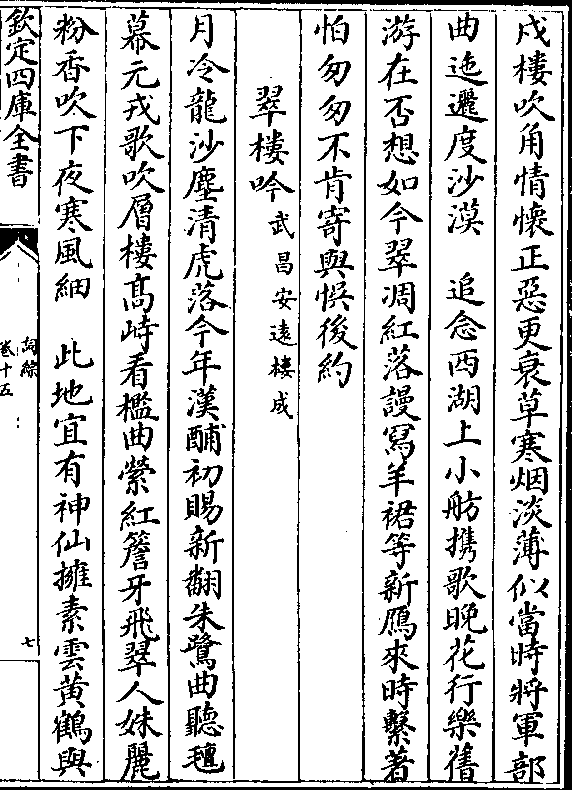 戍樓吹角情懷正惡更衰草寒烟淡薄似當時將軍部
曲迤邐度沙漠　追念西湖上小舫攜歌晚花行樂舊
游在否想如今翠凋紅落謾寫羊裙等新鴈來時繫著
怕匆匆不肯寄與悞後約
翠樓吟武昌安遠樓成
月冷龍沙塵清虎落今年漢酺初賜新翻朱鷺曲聽氊
幕元戎歌吹層樓高峙看檻曲縈紅簷牙飛翠人姝麗
粉香吹下夜寒風細　此地宜有神仙擁素雲黃鶴與
欽定四庫全書
詞綜
卷十五
七